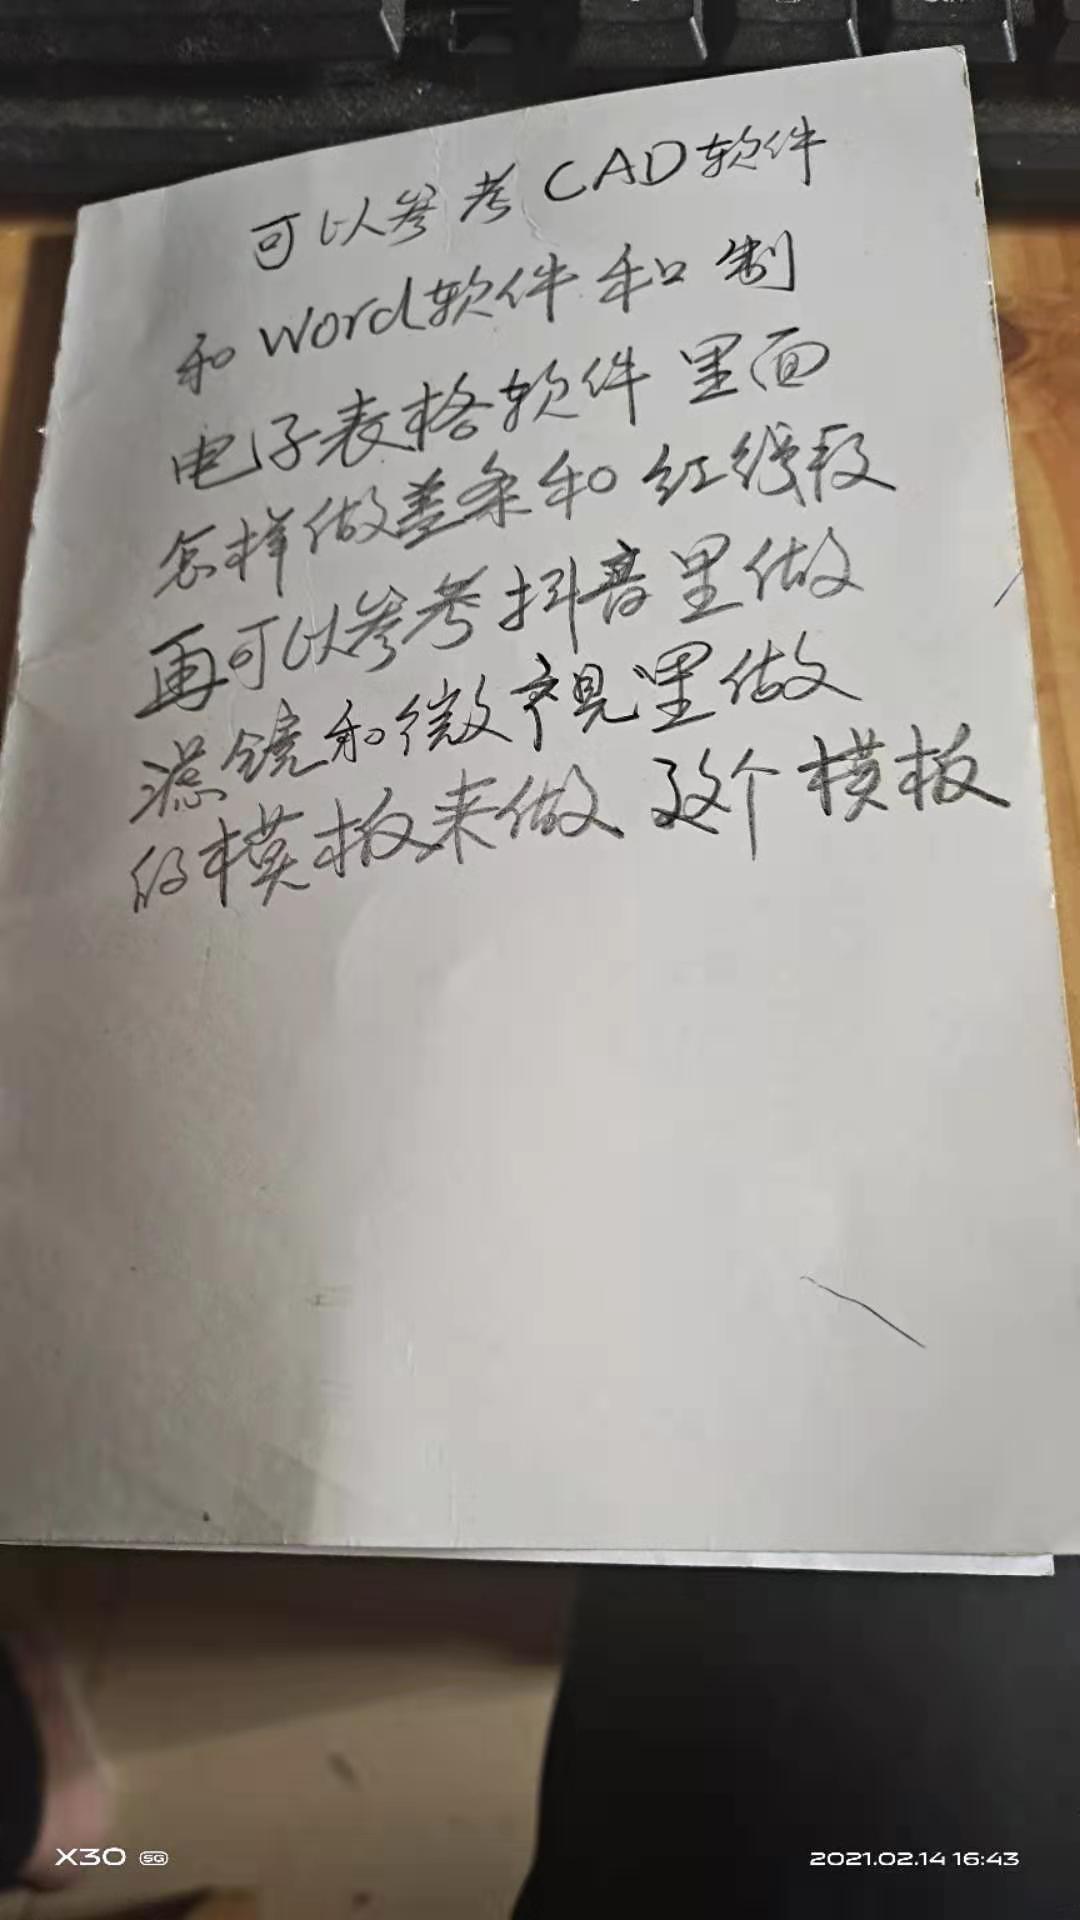 可以参考CAD软件
和Word软件和制
电子表格软件里面
怎样做差条和红线段
再可以参考抖音里做
滤镜和微视里做
的模板来做这个模板
X30 5G
2021.02.14 16:43